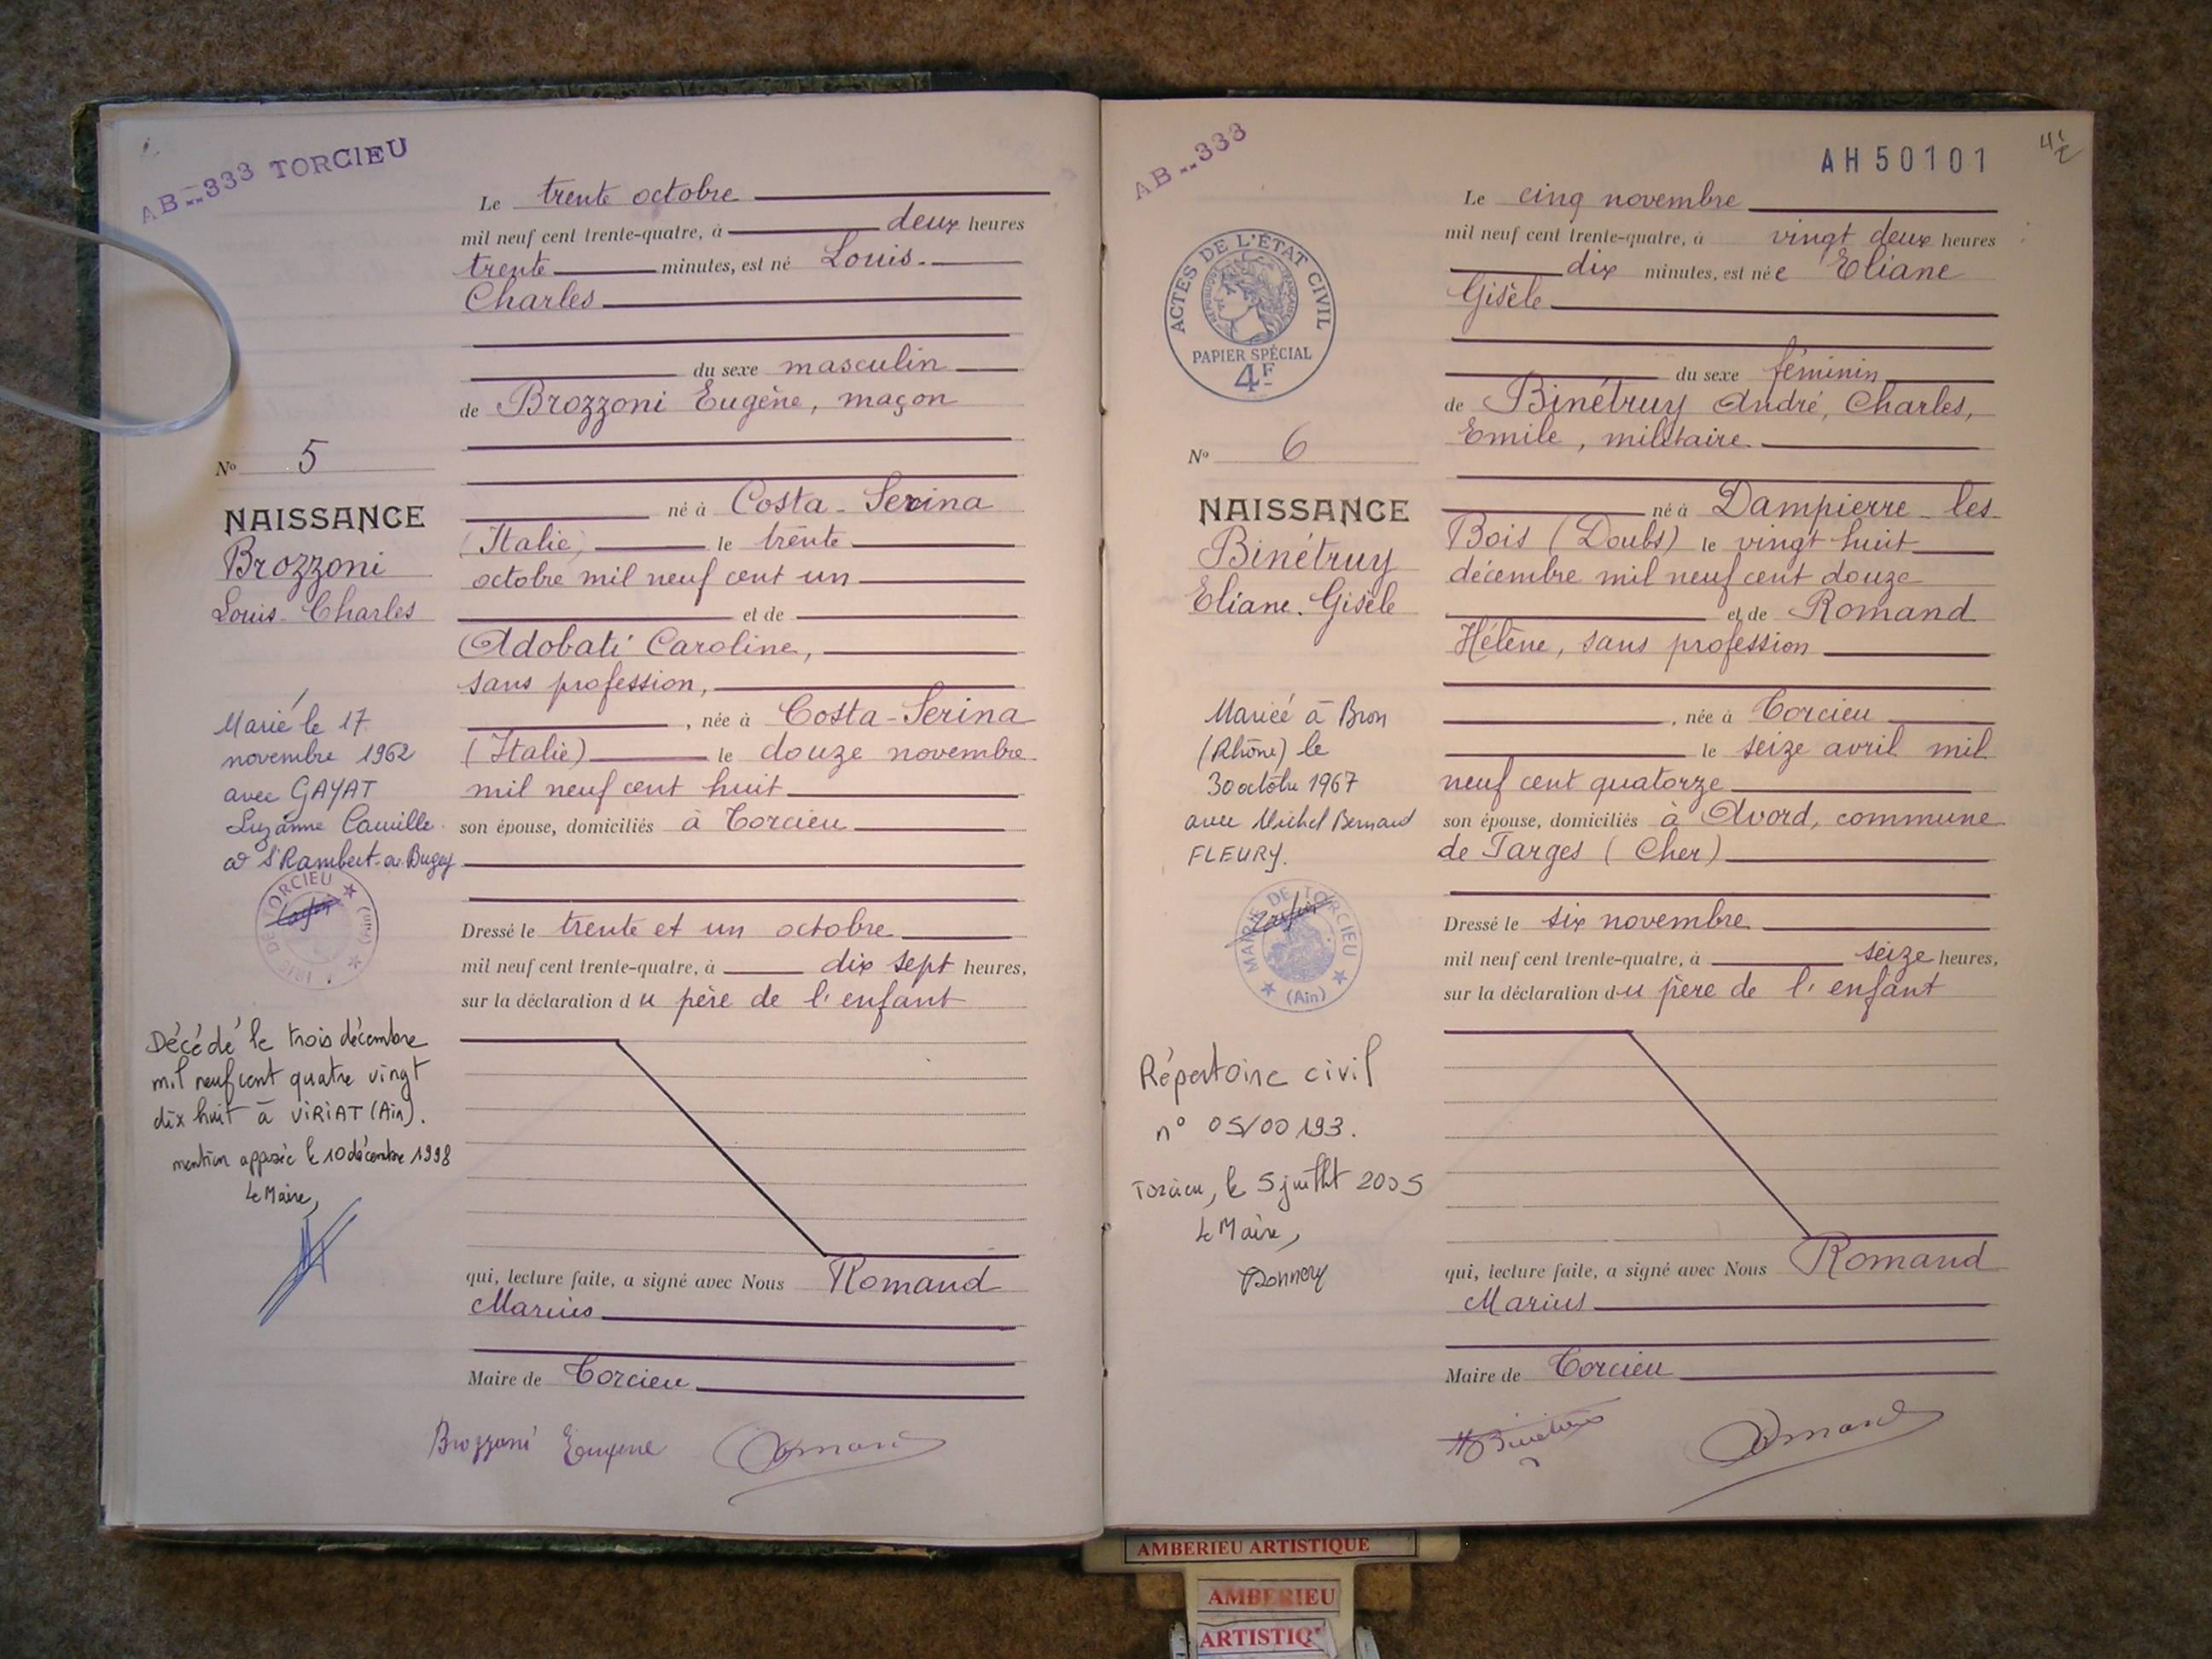 AB...333 TORCIEU
Le trente octobre
mil neuf cent trente-quatre, à deux heures
trente minutes, est né Louis-
Charles
du sexe masculin
de Brozzoni Eugène, maçon
né à Costa-Serina
(Italie) le trente
octobre mil neuf cent un
et de
Adobati Caroline,
sans profession,
, née à Costa-Serina
(Italie) le douze novembre
mil neuf cent huit
son épouse, domiciliés à Torcieu
Dressé le trente et un octobre
mil neuf cent trente-quatre, à dix sept heures,
sur la déclaration du père de l'enfant
qui, lecture faite, a signé avec Nous Romand
Marius
Maire de Torcieu
Brozzoni Eugène Romand
No 5
NAISSANCE
Brozzoni
Louis-Charles
Marié le 17
novembre 1962
avec GAYAT
Suzanne Camille
à St Rambert-en-Bugey
MAIRIE DE TORCIEU (Ain)
Décédé le trois décembre
mil neuf cent quatre vingt
dix huit à VIRIAT (Ain).
mention apposée le 10 décembre 1998
Le Maire,
AB...333
AH50101
Le cinq novembre
mil neuf cent trente-quatre, à vingt deux heures
dix minutes, est née Eliane
Gisèle
du sexe féminin
de Binétruy André, Charles,
Emile, militaire
né à Dampierre-les-
Bois (Doubs) le vingt huit
décembre mil neuf cent douze
et de Romand
Hélène, sans profession
, née à Torcieu
le seize avril mil
neuf cent quatorze
son épouse, domiciliés à Avord, commune
de Farges (Cher)
Dressé le six novembre
mil neuf cent trente-quatre, à seize heures,
sur la déclaration du père de l'enfant
qui, lecture faite, a signé avec Nous Romand
Marius
Maire de Torcieu
Romand
ACTES DE L'ÉTAT CIVIL
RÉPUBLIQUE FRANÇAISE
PAPIER SPÉCIAL
4F
No 6
NAISSANCE
Binétruy
Eliane-Gisèle
Mariée à Bron
(Rhône) le
30 octobre 1967
avec Michel Bernard
FLEURY.
MAIRIE DE TORCIEU
(Ain)
Répertoire civil
n° 05/00193.
Torcieu, le 5 juillet 2005
Le Maire,
AMBERIEU ARTISTIQUE
AMBERIEU
ARTISTIQ